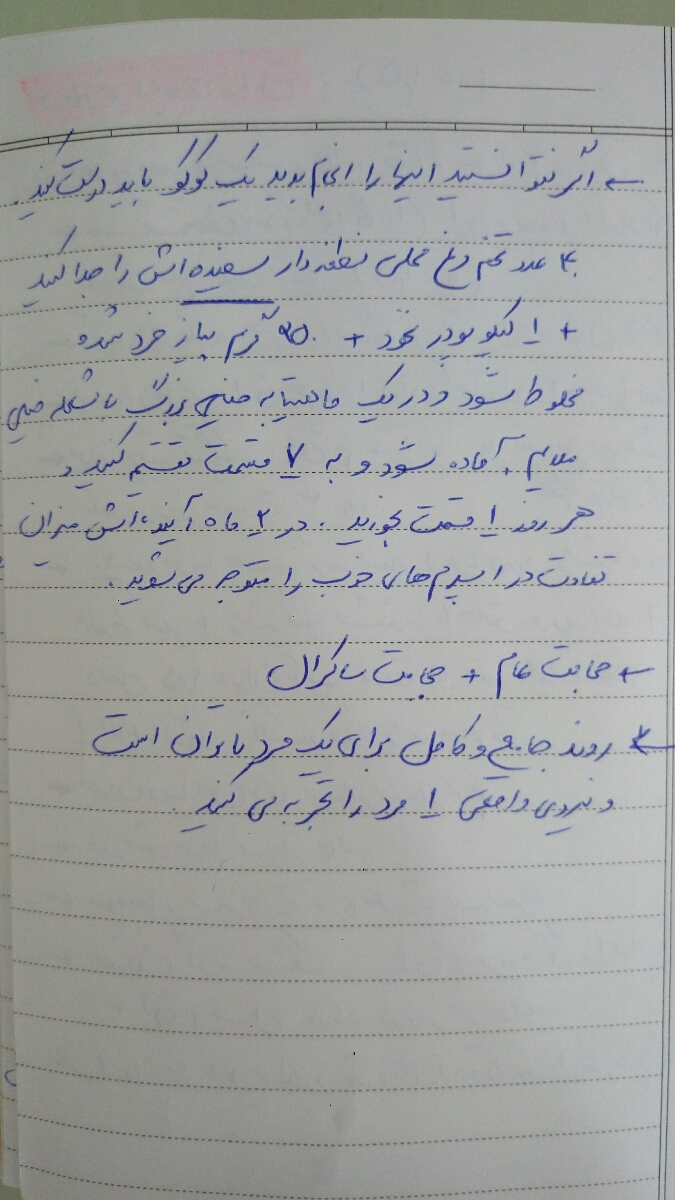 ← اگر نتوانستید اینها را انجام بدید یک کوکو باید درست کنید.
۴۰ عدد تخم مرغ محلی نطفه دار سفیده اش را جدا کنید
+ ۱ کیلو پودر نخود + ۲۵۰ گرم پیاز خرد شده
مخلوط شود و در یک ماهیتابه خیلی بزرگ با شعله خیلی
ملایم آماده شود و به ۷ قسمت تقسیم کنید و
هر روز ۱ قسمت بخورید. در ۲ ماه آینده اش میزان
تفاوت در اسپرم های خوب را متوجه می شوید.
← حجامت عام + حجامت ساکرال
← روند جامع و کامل برای یک مرد ناتوان است
و نیروی واقعی ۱ مرد را تجربه می کنید.